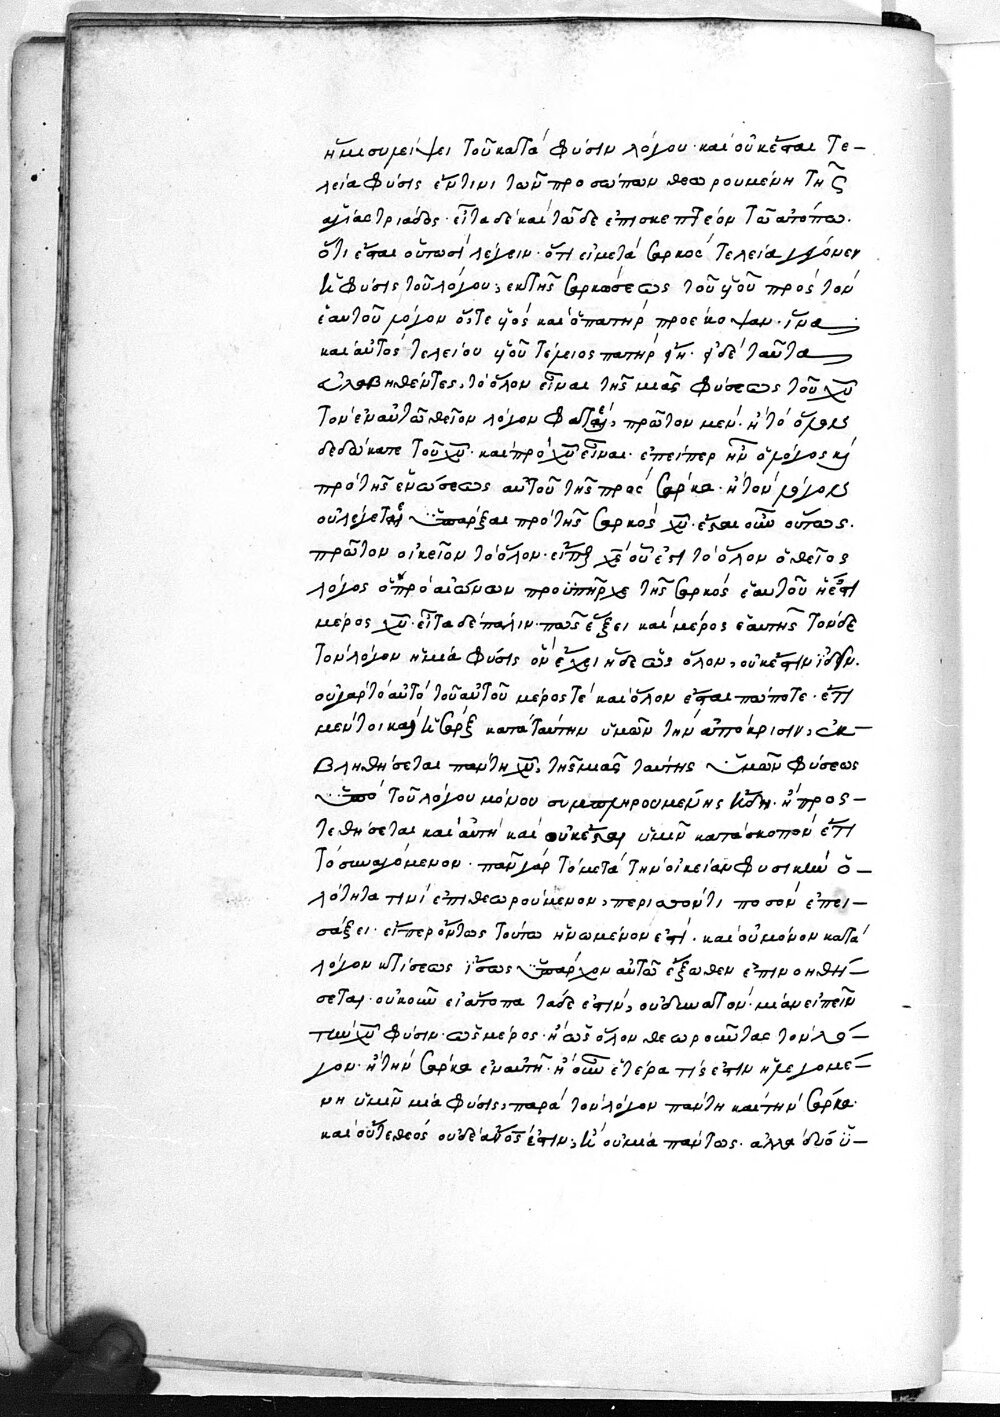 ἡμισυμείψει τοῦ κατὰ φύσιν λόγου· καὶ οὐκ ἔσται τε–
λεία φύσις ἔν τινι τῶν προσώπων θεωρουμένη τῆς
ἁγίας τριάδος· εἶτα δὲ καὶ τῶδε ἐπισκεπτέον τῶ ἀτόπω·
ὅτι ἔσται οὕτωσὶ λέγειν· ὅτι εἰ μετὰ σαρκὸς τελεία γέγονεν
ἡ φύσις τοῦ λόγου, ἐκ τῆς σαρκώσεως τοῦ υἱοῦ πρὸς τὸν
ἑαυτοῦ λόγον ὅ τε υἱὸς καὶ ὁ πατὴρ προέκοψαν· ἵνα
καὶ αὐτὸς τελείου υἱοῦ τέλειος πατὴρ ᾖ· εἰ δὲ ταῦτα
εὐλαβηθέντες, τὸ ὅλον εἶναι τῆς μιᾶς φύσεως τοῦ χυ
τὸν ἐν αὐτῶ θεῖον λόγον φατὲ, πρῶτον μὲν· ἢ τὸ ὅλον
δεδώκατε τοῦ χυ· καὶ πρὸ χυ εἶναι· ἐπείπερ ἦν ὁ λόγος καὶ
πρὸ τῆς ἑνώσεως αὐτοῦ τῆς πρὸς σάρκα· ἢ τὸν λόγον
οὐ λέγετε ὑπάρξαι πρὸ τῆς σαρκὸς χυ· ἔσται οὖν οὕτως·
πρῶτον οἰκεῖον τὸ ὅλον· εἴπερ χς οὗ ἐστὶ τὸ ὅλον ὁ θεῖος
λόγος ὁ πρὸ αἰώνων προϋπῆρχε τῆς σαρκὸς ἑαυτοῦ ἥ ἐστι
μέρος χυ· εἶτα δὲ πάλιν πῶς ἕξει καὶ μέρος ἑαυτῆς τόνδε
τὸν λόγον ἡ μία φύσις ὃν ἔχει ἤδε ὡς ὅλον, οὐκ ἔστιν ἰδεῖν·
οὐ γὰρ τὸ αὐτὸ τοῦ αὐτοῦ μέρος τὲ καὶ ὅλον ἔσται πώποτε· ἔτι
μέντοι καὶ ἡ σὰρξ κατὰ ταύτην ὑμῶν τὴν ἀπόκρισιν, ἐκ–
βληθήσεται πάντη χυ, τῆς μιᾶς ταύτης ὑμῶν φύσεως
ὑπὸ τοῦ λόγου μόνου συμπληρουμένης ἤδη· ἢ προς–
τεθήσεται καὶ αὐτὴ καὶ οὐκ ἔσται ὑμῖν κατὰ σκοπὸν ἔτι
τὸ συναγόμενον· πᾶν γὰρ τὸ μετὰ τὴν οἰκείαν φυσικὴν ὁ–
λότητα τινὶ ἐπιθεωρούμενον, περιττόν τι ποσὸν ἐπει–
σάξει· εἴπερ ὄντως τούτω ἡνωμένον ἐστί· καὶ οὐ μόνον κατὰ
λόγον κτίσεως ἴσως ὑπάρχον αὐτῶ ἔξωθεν ἐπινοηθή–
σεται· οὐκοῦν εἰ ἄτοπα τάδε ἐστίν, οὐ δυνατὸν· μίαν εἰπεῖν
τινὰ χυ φύσιν· ὡς μέρος· ἢ ὡς ὅλον θεωροῦντας τὸν λό–
γον· ἢ τὴν σάρκα ἐν αὐτῆ· ἢ οὖν ἑτέρα τίς ἐστιν ἡ λεγομέ–
νη ὑμῖν μία φύσις, παρὰ τὸν λόγον πάντη καὶ τὴν σάρκα·
καὶ οὔτε θεὸς οὐδὲ ἄνος ἐστίν, ἢ οὐ μία πάντως· ἀλλὰ δύο ὑ–